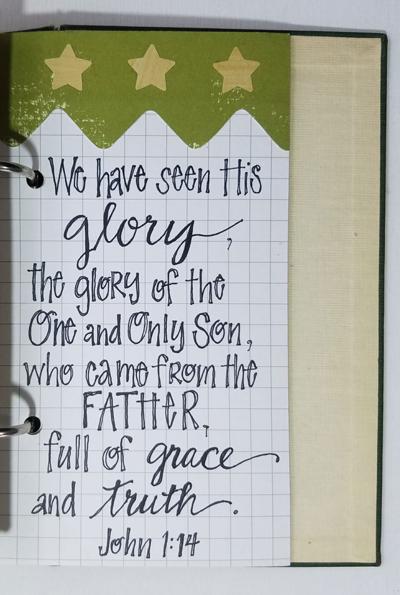 We have seen His
glory,
the glory of the
One and Only Son,
who came from the
FATHER,
full of grace
and truth.
John 1:14